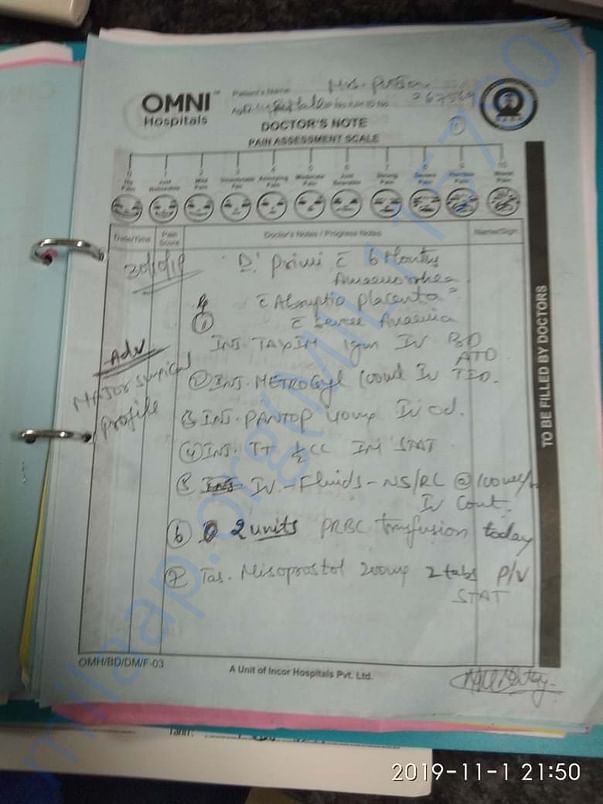 OMNI
Hospitals
Patient's Name
Mrs.
DOCTOR'S NOTE
PAIN ASSESSMENT SCALE
0 1 2 3 4 5 6 7 8 9 10
No Pain
Mild Pain
Moderate Pain
Strong Pain
Severe Pain
Worst Pain
Date/Time
Pain Score
Doctor's Notes / Progress Notes
Name/Sign
D' Primi C 6 Months
Amenorrhea
C Abruptio Placenta"
C Severe Anaemia
① INJ. TAXIM 1gm IV BD
ATD
Adv
Major surgical
profile
② INJ. METROGYL 100ml IV TID.
3 INJ. PANTOP 40mg IV od.
④ INJ. TT ½CC IM STAT
5 IV - Fluids - NS/RL @ 100ml/h
IV Cont.
⑥ 2 units PRBC transfusion today
⑦ Tab. Misoprostol 200mcg 2 tabs P/V
STAT
TO BE FILLED BY DOCTORS
OMH/BD/DM/F-03
A Unit of Incor Hospitals Pvt. Ltd.
2019-11-1 21:50